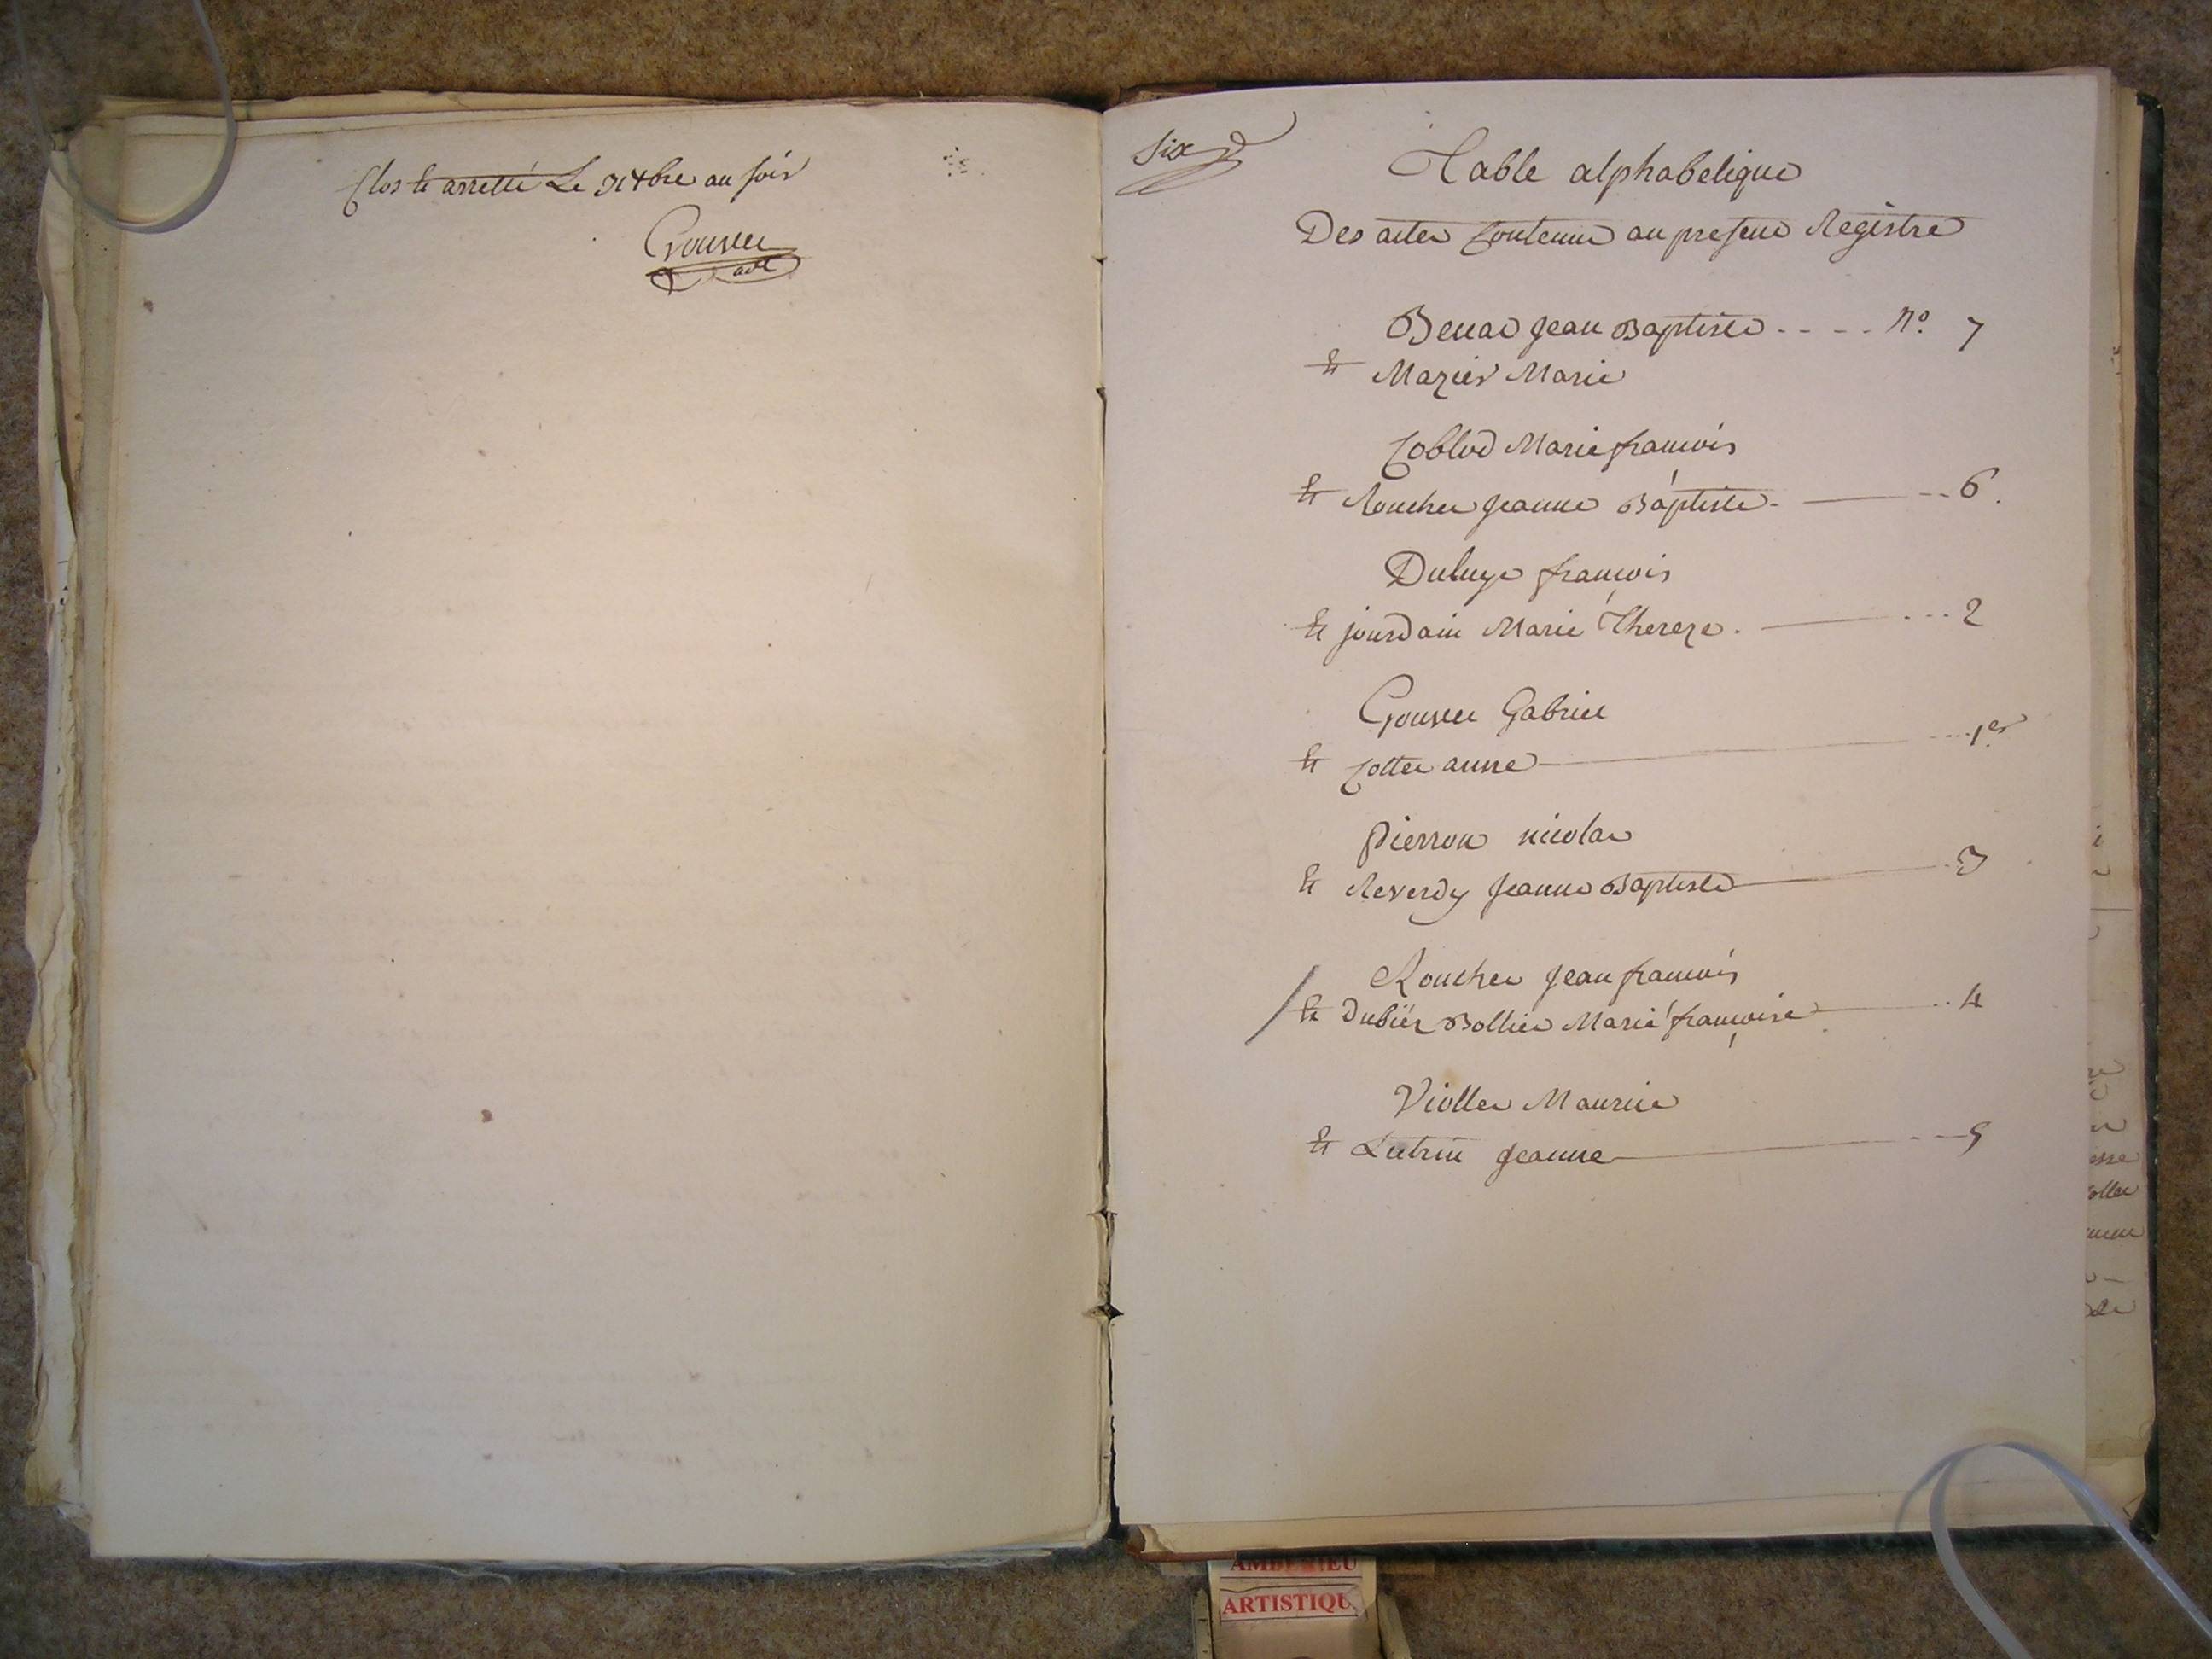 Clos et arretté Le Xbre au soir
six
Table alphabetique
Des actes Contenus au present Registre
Benac Jean Baptiste ---- No. 7
Et Mazier Marie
Coblod Marie francois
Et Rouches Jeanne Baptiste - --- 6.
François
Et jourdain Marie Thereze. --- 2
Gabriel
Et Cottet anne --- 1er
Pierron nicolas
Et Reverdy Jeanne Baptiste --- 3
Jean francois
Et Bollier Marie françoise -- 4
Viollet Maurice
Et Lutrin Jeanne --- 5
esse
ollet
AMBERIEU
ARTISTIQU